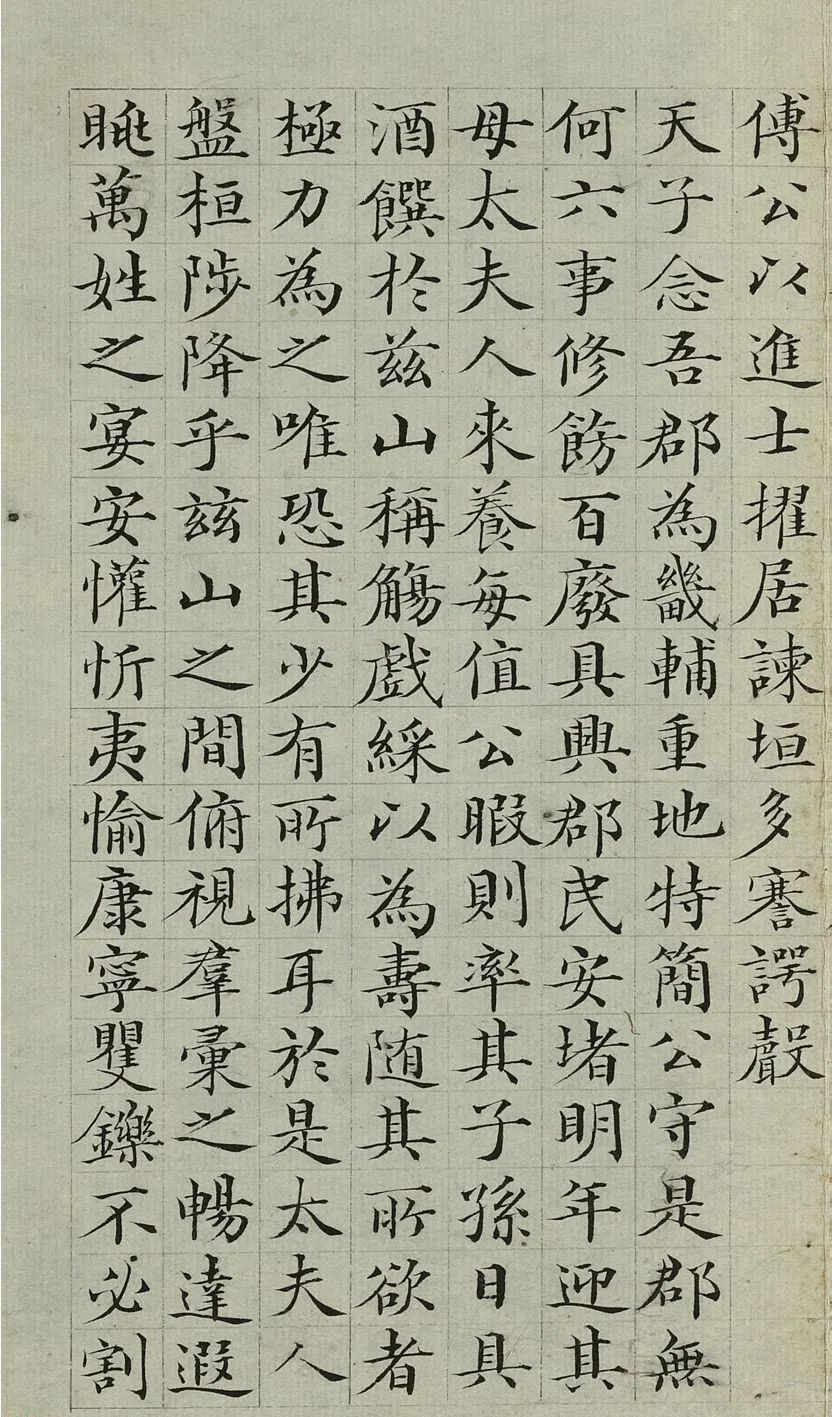 傅公以進士擢居諫垣多謇諤聲
天子念吾郡為畿輔重地特簡公守是郡無
何六事修飭百廢具興郡民安堵明年迎其
母太夫人來養每值公暇則率其子孫日具
酒饌於茲山稱觴戲綵以為壽随其所欲者
極力為之唯恐其少有所拂耳於是太夫人
盤桓陟降乎茲山之間俯視羣彙之暢達遐
眺萬姓之宴安懽忻夷愉康寧矍鑠不必割